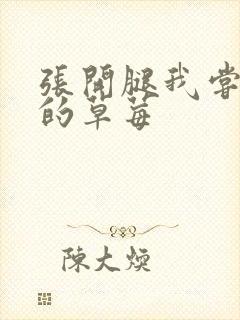 張開腿我嘗
的草莓
陳大煐